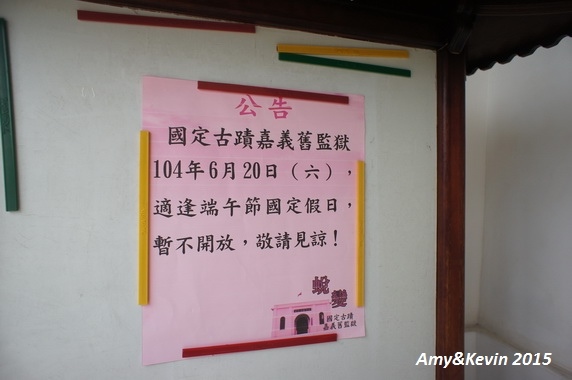 公告
國定古蹟嘉義舊監獄
104年6月20日（六），
適逢端午節國定假日，
暫不開放，敬請見諒！
蛻變
國定古蹟
嘉義舊監獄
Amy&Kevin 2015